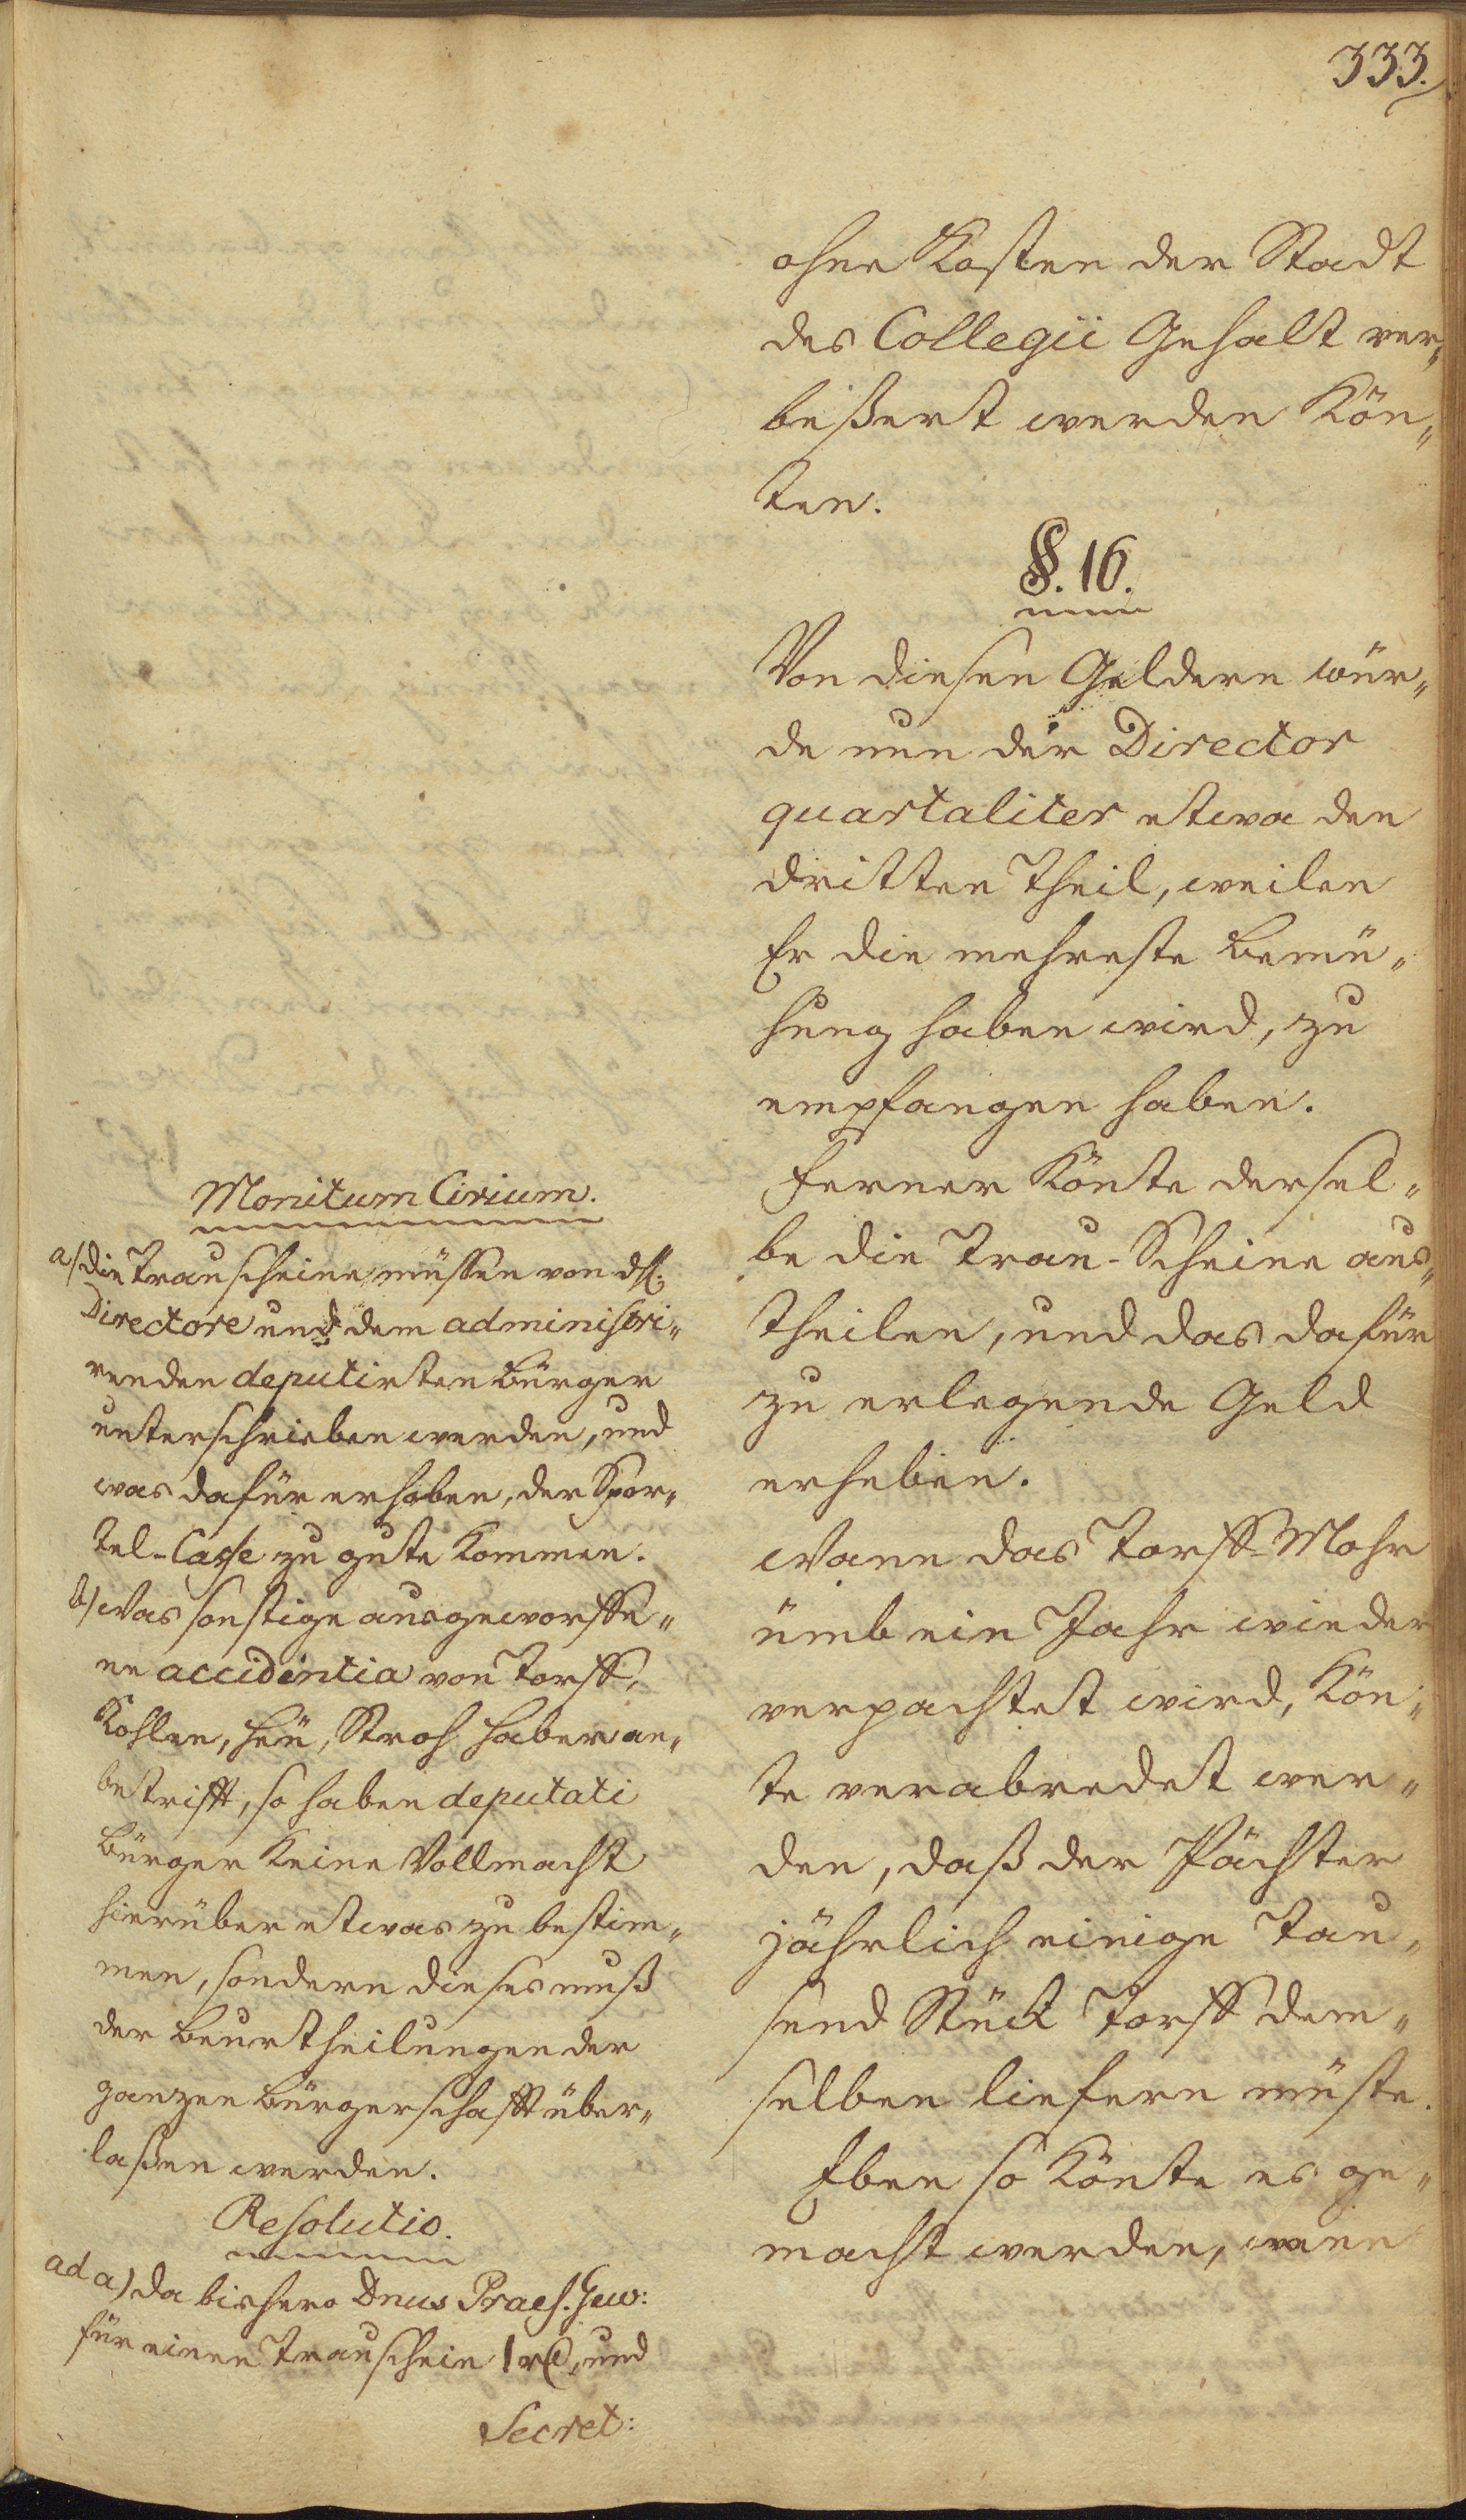 333.
ohne Kosten der Stadt
des Collegii Gehalt ver„
beßert werden Kön„
ten.
§. 16.
Von diesen Geldern wür„
de nun der Director
quartaliter etwa den
dritten Theil, weilen
Er die mehreste Bemü„
hung haben wird, zu
empfangen haben.
Ferner Könte dersel„
be die Trau-Scheine aus„
theilen, und das dafür
zu erlegende Geld
erheben.
Wann das Torff-Mohr
ümb ein Jahr wieder
verpachtet wird, Kön„
te verabredet wer„
den, daß der Pächter
jährlich einige Tau„
send Stück Torff dem„
selben liefern müste.
Eben so Könte es ge„
macht werden, wenn
Monitum Civium.
a) die Trauscheine müssen von
Directore und dem administri„
renden deputirten Bürger
unterschrieben werden, und
was dafür erhoben, der Spor„
tel-Casse zu gute Kommen.
b) Was sonstige ausgeworffe„
ne accidentia von Torff,
Kohlen, Heü, Stroh Haber an„
betrifft, so haben deputati
Bürger Keine Vollmacht
hierüber etwas zu bestim„
men, sondern dieses muß
der Beurtheilungen der
ganzen Bürgerschafft über„
laßen werden.
Resolutio.
ad a) da bishero Dnus Praes.
für einen Trauschein 1 und
Secret: